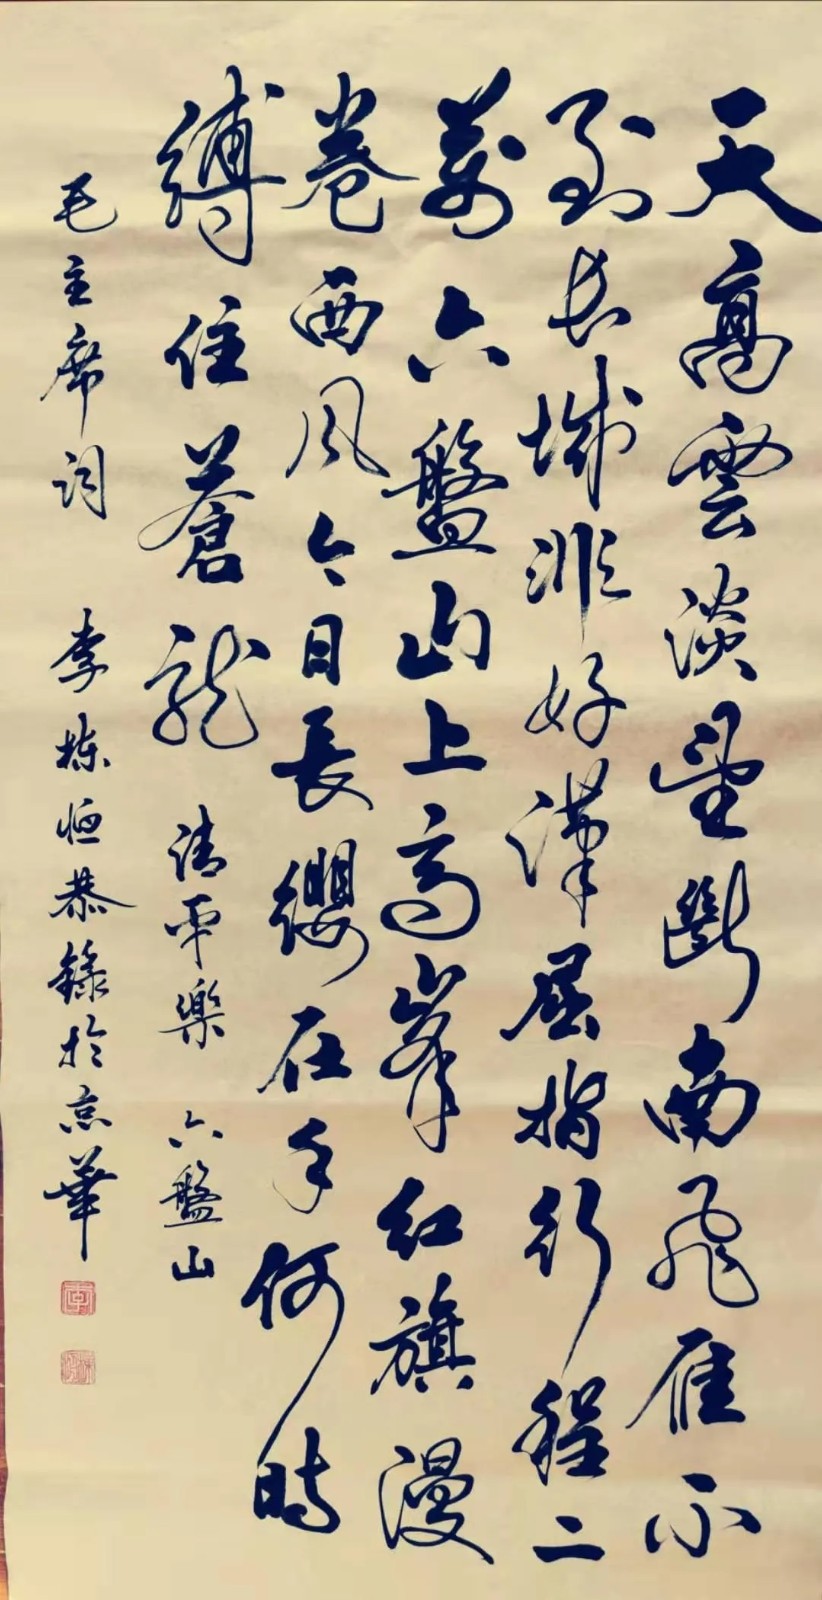 天高雲淡望斷南飛雁不
到長城非好漢屈指行程二
萬六盤山上高峯紅旗漫
卷西風今日長纓在手何時
縛住蒼龍 清平樂 六盤山
毛主席詞 李棟恒恭錄於京華
李